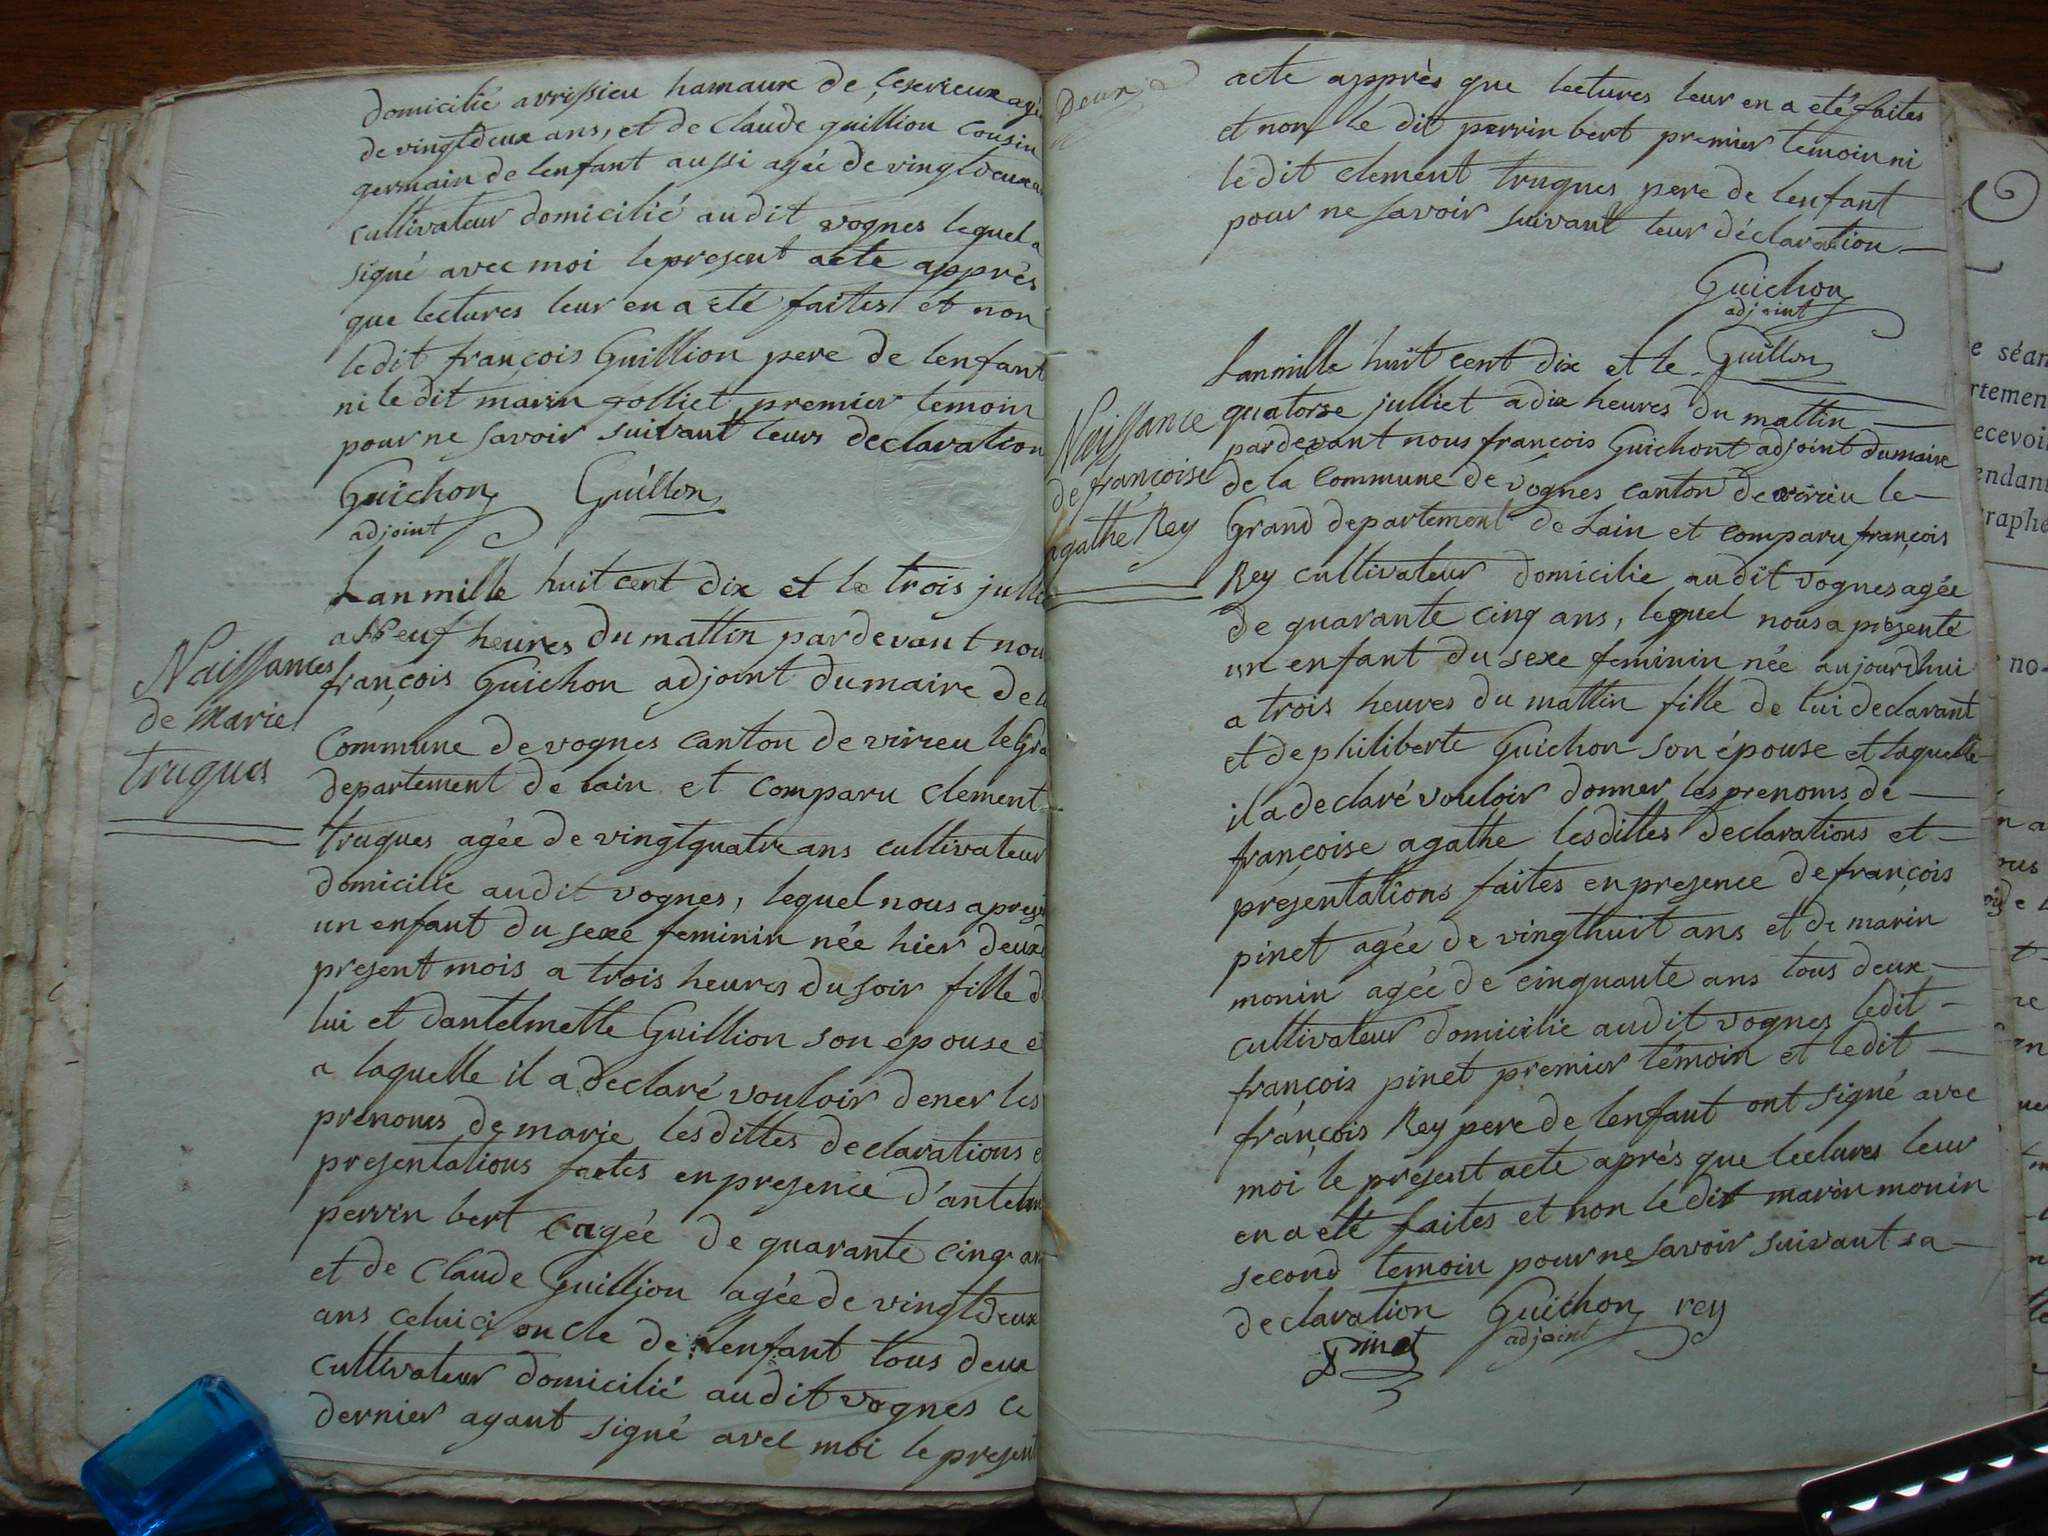 domicilié avrissieu hamaux de Ceserieux agé
de vingtdeux ans, et de Claude guillion Cousin
germain de lenfant aussi agée de vingtdeux
cultivateur domicilié audit vognes lequel a
signé avec moi le present acte apprès
que lectures leur en a eté faites et non
ledit françois Guillion pere de lenfant
ni ledit marin golliet premier temoin
pour ne savoir suivant leurs declaration
Guichon Guillon
adjoint
Lanmille huit cent dix et le trois jullie
a Neuf heures du mattin pardevant nou
Naissances
de marie
truques
françois Guichon adjoint du maire de la
Commune de vognes canton de virieu le Gra
departement de lain et comparu Clement
truques agée de vingtquatre ans cultivateur
domicilie audit vognes, lequel nous a presen
un enfant du sexe feminin née hier deux d
present mois a trois heures du soir fille d
lui et dantelmette Guillion son epouse e
a laquelle il a declaré vouloir dener les
prenoms de marie lesdittes declarations e
presentations faites en presence d'antelm
perrin bert agée de quarante cinq an
et de Claude Guillion agée de vingtdeux
ans celui ci oncle de lenfant tous deux
cultivateur domicilié audit vognes ce
dernier ayant signé avec moi le present
Deux
acte apprès que lectures leur en a eté faites
et non le dit perrin bert premier temoin ni
le dit clement truques pere de lenfant
pour ne savoir suivant leur déclaration
Guichon
adjoint
Guillon
Lanmille huit cent dix et le
Naissance
de françoise
agathe Rey
quatorse julliet a dix heures du mattin
pardevant nous françois Guichont adjoint du maire
de la Commune de vognes canton de virieu le
Grand departement de Lain et comparu françois
Rey cultivateur domicilie audit vognes agée
de quarante cinq ans, lequel nous a presenté
un enfant du sexe feminin née aujourdhui
a trois heures du mattin fille de lui declarant
et de philiberte Guichon son épouse et laquelle
il a declaré vouloir donner les prenoms de
françoise agathe lesdittes declarations et
presentations faites en presence de françois
pinet agée de vingthuit ans et de marin
monin agée de cinquante ans tous deux
cultivateur domicilie audit vognes ledit
françois pinet premier témoin et ledit
françois Rey pere de lenfant ont signé avec
moi le present acte après que lectures leur
en a eté faites et non le dit marin monin
second temoin pour ne savoir suivant sa
declaration Guichon rey
Pinet adjoint